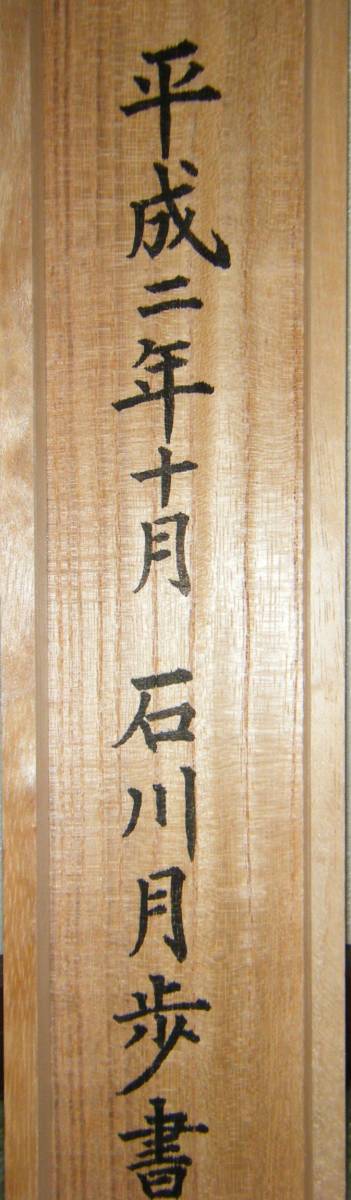 平成二年十月 石川月歩書